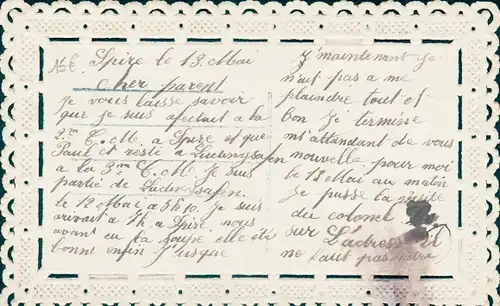 15€
Spire le 13 Mai
Cher parent
je vous laisse savoir
que je suis afectait a la
2.em C. M. a Spire et que
Paul et reste a Ludwigsafen
a la 3me C. M. Je suis
partie de Ludwigsafen.
le 12 Mai a 5h10. je suis
arrivait a 7h a Spire, nous
avont eu la soupe elle été
bonne enfin j'usque
J'maintenant je
n'aut pas a me
plaindre tout et
bon Je termine
en attandant de vous
nouvelle, pour moi
le 13 Mai au matin
je passe la visite
du colonel
sur L'adresse il
ne faut pas mdre